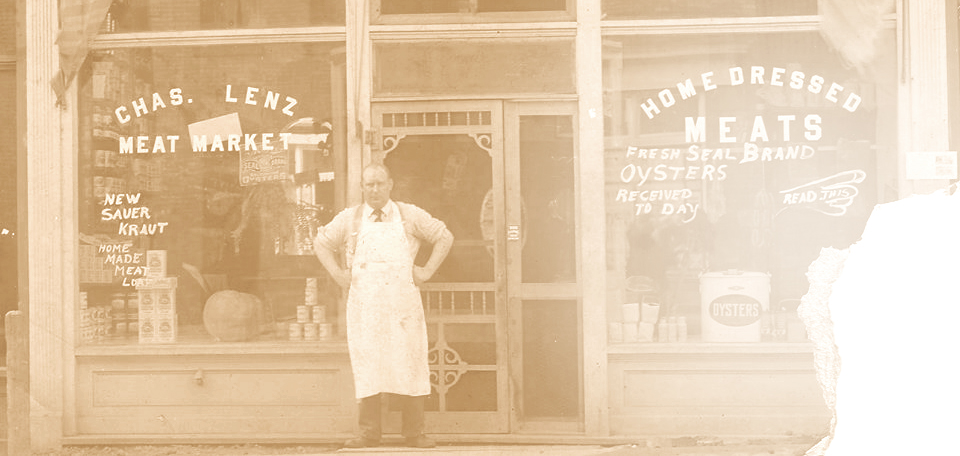 CHAS. LENZ
MEAT MARKET
SEAL BRAND
OYSTERS
NEW
SAUER
KRAUT
HOME
MADE
MEAT
LOAF
HOME DRESSED
MEATS
FRESH SEAL BRAND
OYSTERS
RECEIVED
TO DAY
READ THIS
OYSTERS